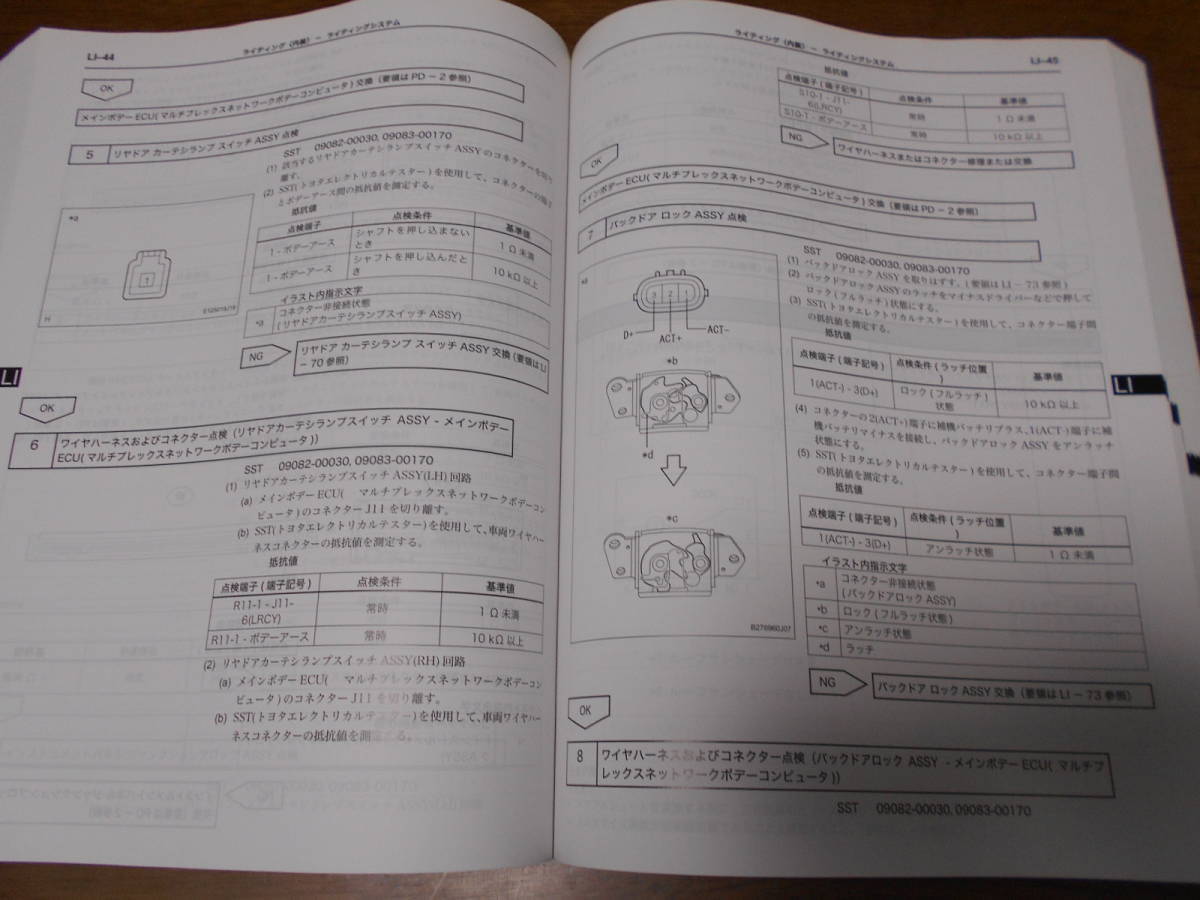 LI-44
ライティング（内装） － ライティングシステム
OK
メインボデーECU(マルチプレックスネットワークボデーコンピュータ)交換（要領はPD－2参照）
5 リヤドア カーテシランプ スイッチ ASSY 点検
SST 09082-00030, 09083-00170
(1) 該当するリヤドアカーテシランプスイッチ ASSY のコネクターを切り
離す。
(2) SST(トヨタエレクトリカルテスター)を使用して、コネクターの端子
とボデーアース間の抵抗値を測定する。
抵抗値
点検端子 点検条件 基準値
1 - ボデーアース シャフトを押し込まない
とき 1 Ω 未満
1 - ボデーアース シャフトを押し込んだと
き 10 kΩ 以上
イラスト内指示文字
*a コネクター非接続状態
(リヤドアカーテシランプスイッチ ASSY)
*a
1
H
NG
リヤドア カーテシランプ スイッチ ASSY 交換（要領は LI
－ 70 参照）
LI
OK
6 ワイヤハーネスおよびコネクター点検（リヤドアカーテシランプスイッチ ASSY - メインボデー
ECU(マルチプレックスネットワークボデーコンピュータ)）
SST 09082-00030, 09083-00170
(1) リヤドアカーテシランプスイッチ ASSY(LH) 回路
(a) メインボデー ECU( マルチプレックスネットワークボデーコン
ピュータ)のコネクター J11 を切り離す。
(b) SST(トヨタエレクトリカルテスター)を使用して、車両ワイヤハー
ネスコネクターの抵抗値を測定する。
抵抗値
点検端子 (端子記号) 点検条件 基準値
R11-1 - J11-
6(LRCY) 常時 1 Ω 未満
R11-1 - ボデーアース 常時 10 kΩ 以上
(2) リヤドアカーテシランプスイッチ ASSY(RH) 回路
(a) メインボデー ECU( マルチプレックスネットワークボデーコン
ピュータ)のコネクター J11 を切り離す。
(b) SST(トヨタエレクトリカルテスター)を使用して、車両ワイヤハー
ネスコネクターの抵抗値を測定する。
ライティング（内装） － ライティングシステム
LI-45
抵抗値
点検端子 (端子記号) 点検条件 基準値
S10-1 - J11-
6(LRCY) 常時 1 Ω 未満
S10-1 - ボデーアース 常時 10 kΩ 以上
NG
ワイヤハーネスまたはコネクター修理または交換
OK
メインボデーECU(マルチプレックスネットワークボデーコンピュータ)交換（要領はPD－2参照）
7 バックドア ロック ASSY 点検
SST 09082-00030, 09083-00170
(1) バックドアロック ASSY を取りはずす。(要領は LI － 73 参照)
(2) バックドアロック ASSY のラッチをマイナスドライバーなどで押して
ロック (フルラッチ) 状態にする。
(3) SST(トヨタエレクトリカルテスター)を使用して、コネクター端子間
の抵抗値を測定する。
抵抗値
点検端子 (端子記号) 点検条件 (ラッチ位置
) 基準値
1(ACT-) - 3(D+) ロック (フルラッチ)
状態 10 kΩ 以上
(4) コネクターの 2(ACT+) 端子に補機バッテリプラス、1(ACT-) 端子に補
機バッテリマイナスを接続し、バックドアロック ASSY をアンラッチ
状態にする。
(5) SST(トヨタエレクトリカルテスター)を使用して、コネクター端子間
の抵抗値を測定する。
抵抗値
点検端子 (端子記号) 点検条件 (ラッチ位置
) 基準値
1(ACT-) - 3(D+) アンラッチ状態 1 Ω 未満
イラスト内指示文字
*a コネクター非接続状態
(バックドアロック ASSY)
*b ロック (フルラッチ状態)
*c アンラッチ状態
*d ラッチ
*a
3 2 1
D+ ACT+ ACT-
*b
*d
*c
B276960J07
LI
NG
バックドア ロック ASSY 交換（要領は LI － 73 参照）
OK
8 ワイヤハーネスおよびコネクター点検（バックドアロック ASSY - メインボデー ECU( マルチプ
レックスネットワークボデーコンピュータ)）
SST 09082-00030, 09083-00170